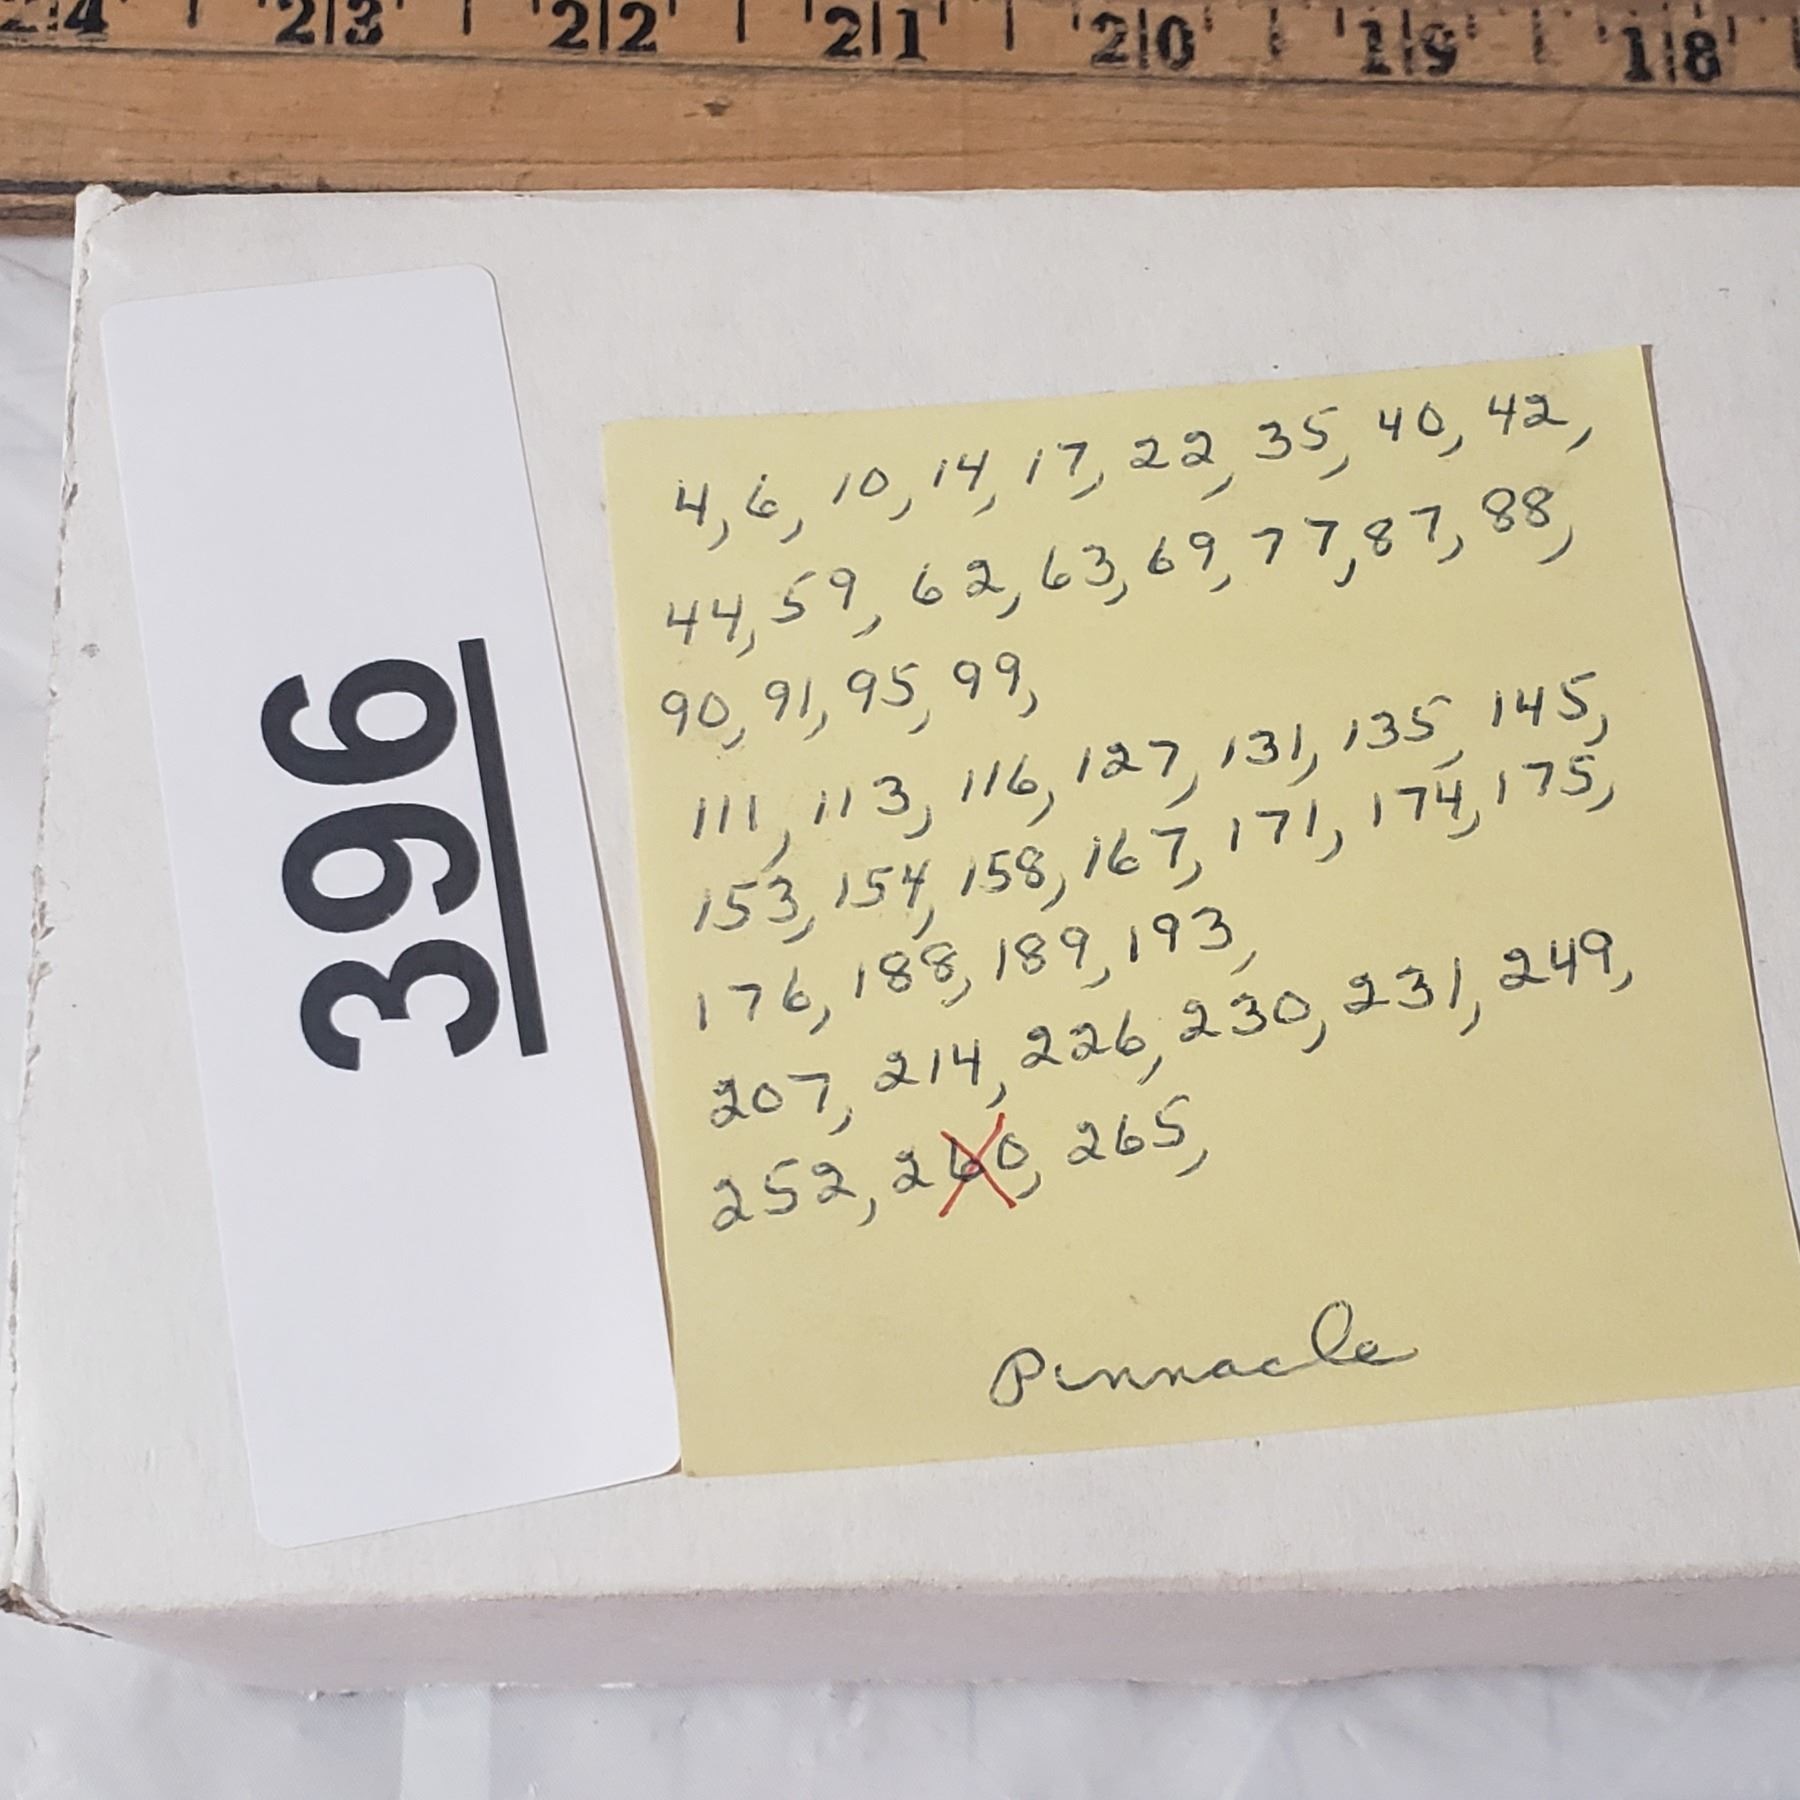 24 23 22 21 20 19 18
396
4, 6, 10, 14, 17, 22, 35, 40, 42,
44, 59, 62, 63, 69, 77, 87, 88,
90, 91, 95, 99,
111, 113, 116, 127, 131, 135, 145,
153, 154, 158, 167, 171, 174, 175,
176, 188, 189, 193,
207, 214, 226, 230, 231, 249,
252, 260, 265,
Pinnacle